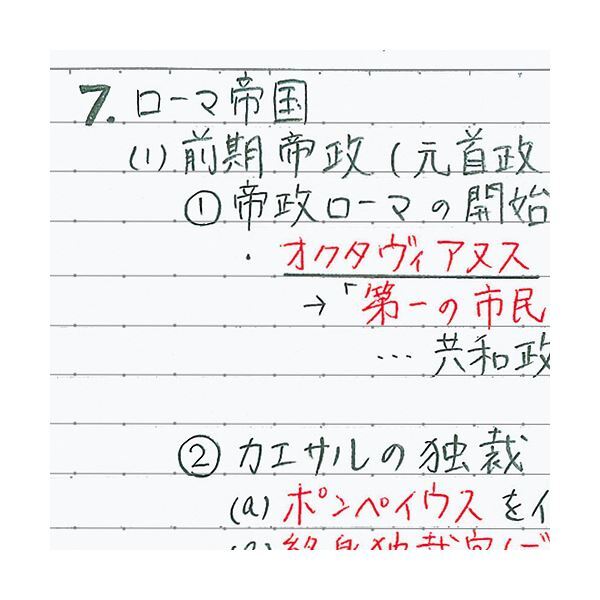 7. ローマ帝国
(1) 前期帝政 (元首政
① 帝政ローマの開始
・ オクタヴィアヌス
→「第一の市民
… 共和政
② カエサルの独裁
(a) ポンペイウスをイ